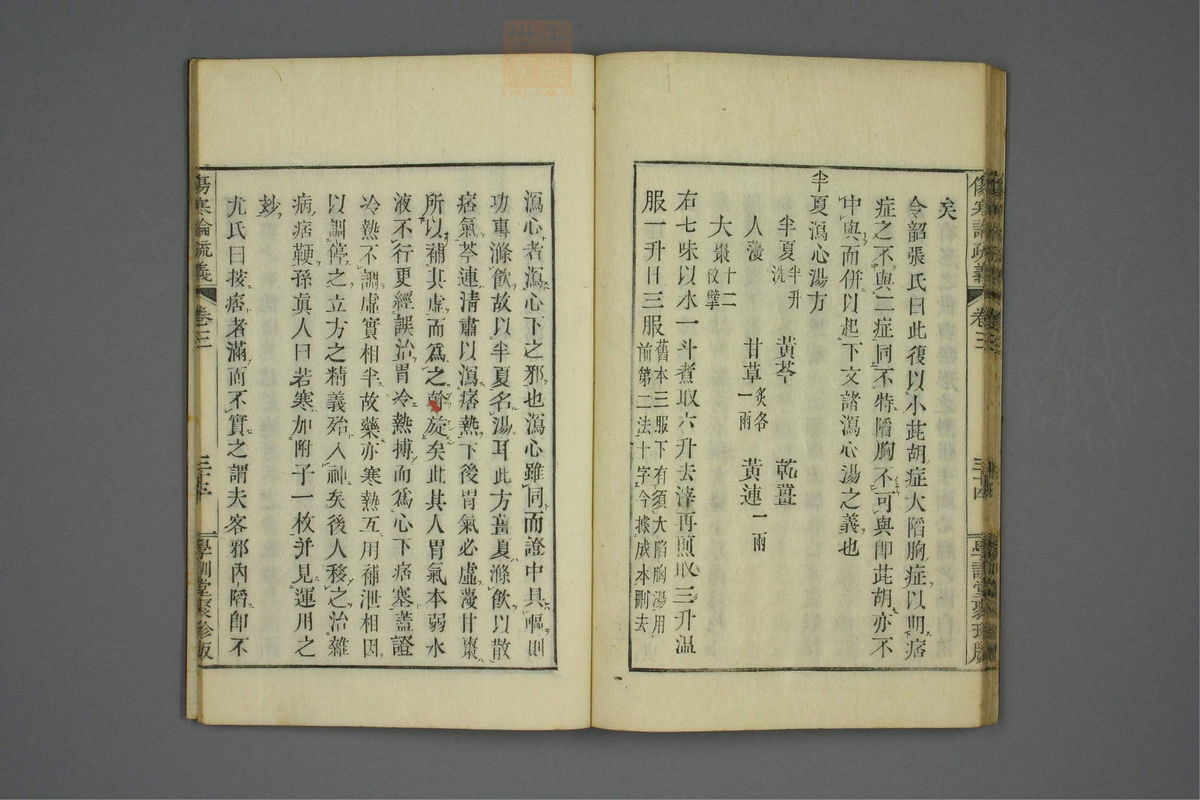 傷寒論疏義 卷三 三十四 學訓堂聚珍版
矣
令韶張氏曰此復以小茈胡症大陷胸症以明痞
症之不與二症同不特陷胸不可與即茈胡亦不
中與而併以起下文諸瀉心湯之義也
半夏瀉心湯方
半夏半升洗 黃芩 乾薑
人蓡 甘草炙各一兩 黃連一兩
大棗十二枚擘
右七味以水一斗煮取六升去滓再煎取三升温
服一升日三服舊本三服下有須大陷胸湯用前第二法十字今據成本刪去
瀉心者瀉心下之邪也瀉心雖同而證中具嘔則
功專滌飲故以半夏名湯耳此方薑夏滌飲以散
痞氣芩連清肅以瀉痞熱下後胃氣必虛蓡甘棗
所以補其虛而爲之斡旋矣此其人胃氣本弱水
液不行更經誤治胃冷熱搏而爲心下痞塞蓋證
冷熱不調虛實相半故藥亦寒熱互用補泄相因
以調停之立方之精義殆入神矣後人移之治雜
病痞鞕孫眞人曰若寒加附子一枚并見運用之
妙
尤氏曰按痞者滿而不實之謂夫客邪內陷即不
傷寒論疏義 卷三 學訓堂聚珍版